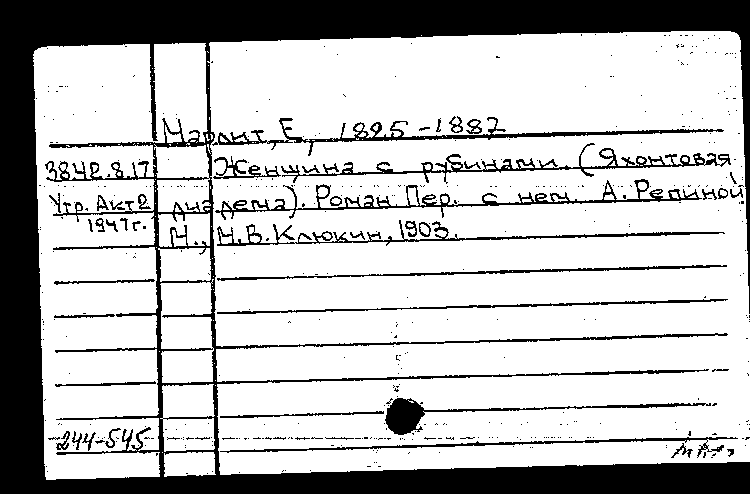 Марлит, Е., 1825-1887
3842.8.17 Женщина с рубинами. (Яхонтовая
Утр. Акт 2 диадема). Роман Пер. с нем. А. Репиной
1947г. М., М.В. Клюкин, 1903.
244-545